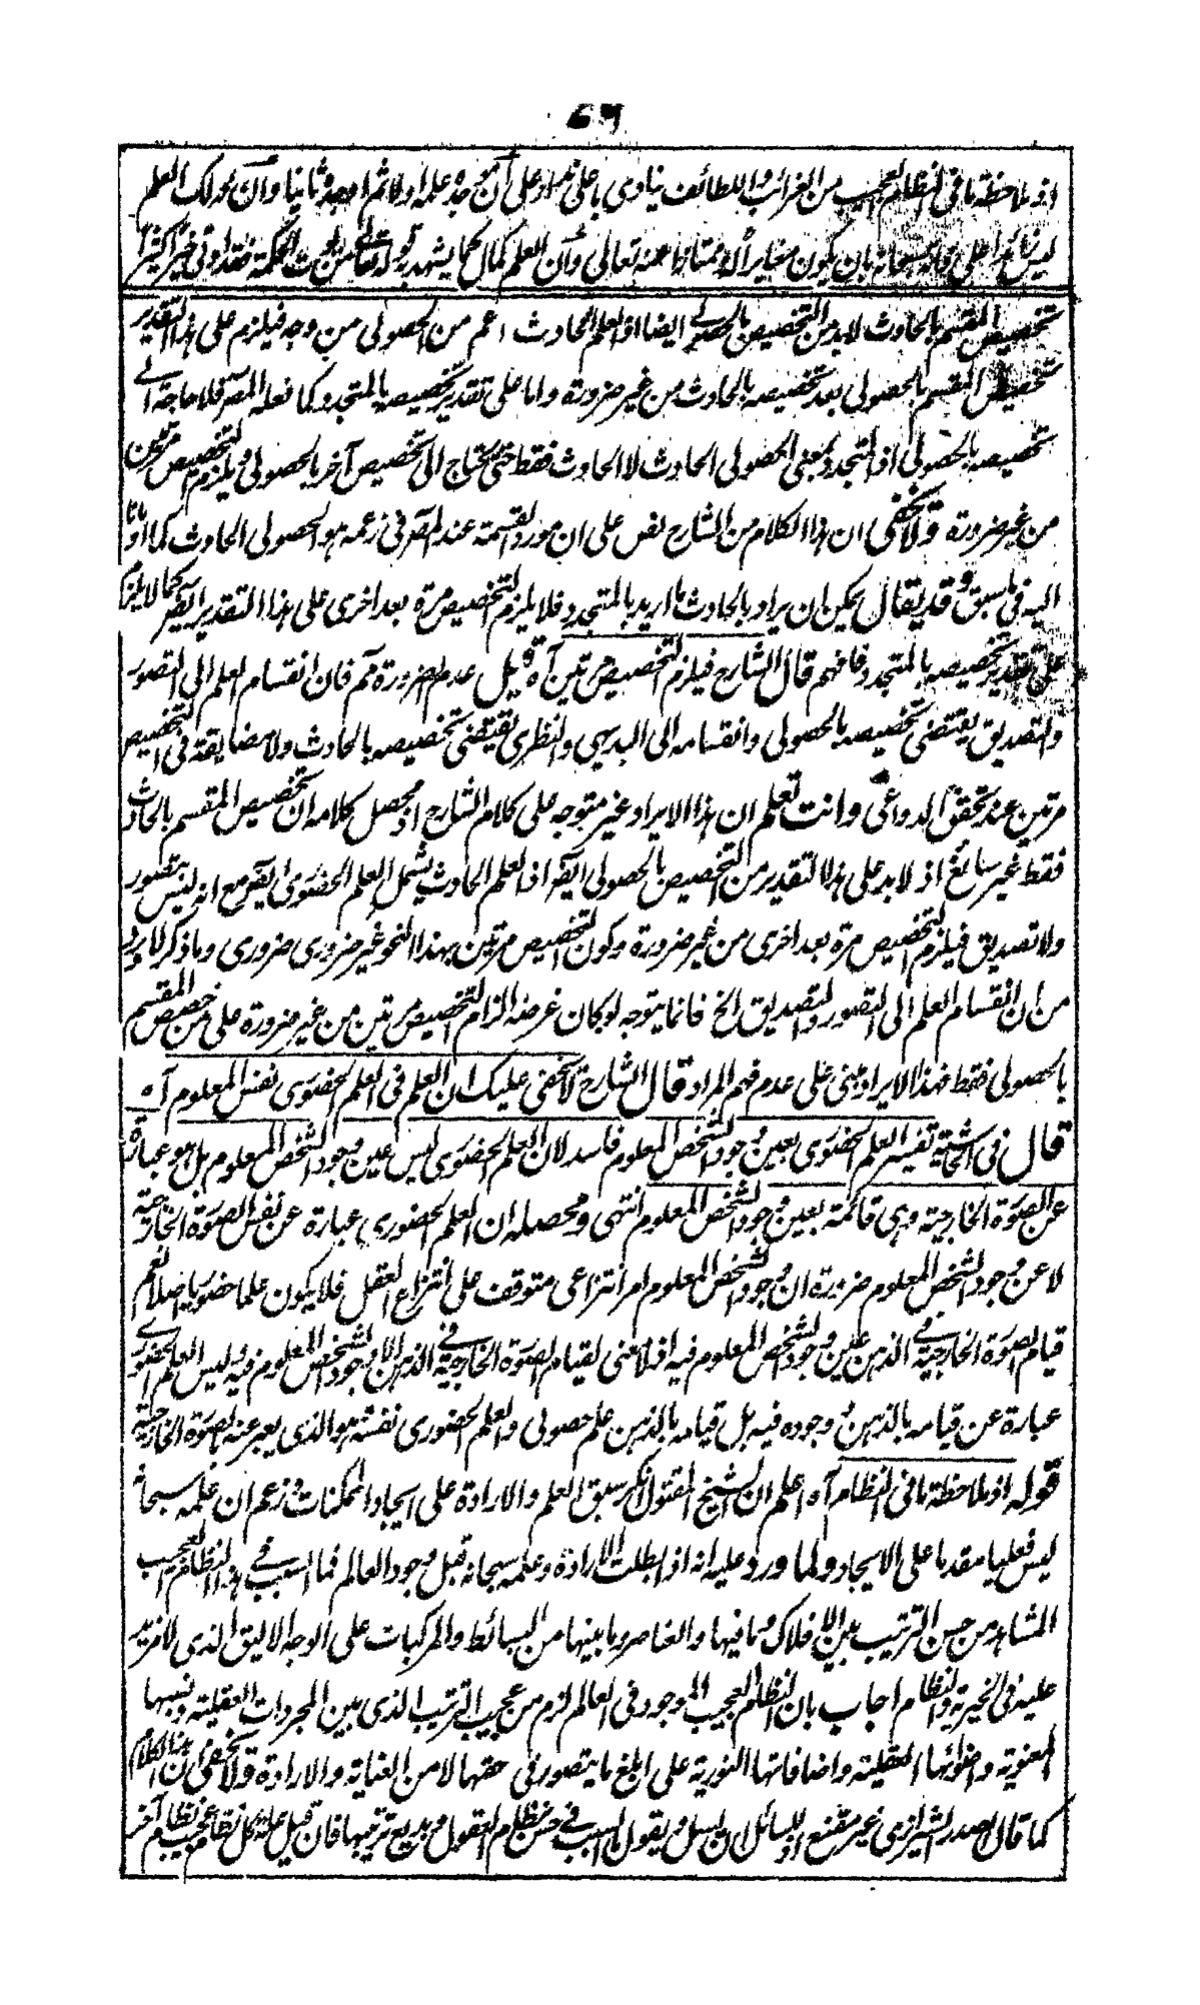 اذ ملاحظة ما فى النظام العجيب من الغرائب واللطائف ينادى باعلى نداء على أن موجده علمه اولا ثم اوجده ثانيا وأن مدلك العلم
ليس زائدا على ذاته سبحانه بان يكون مغايرا له ممتازا عنه تعالى وأن العلم كمال كما يشهد به قوله تعالى ومن يؤت الحكمة فقد اوتى خيرا كثيرا
تخصيص المقسم بالحادث لابد من التخصيص بالحصولى ايضا اذ العلم الحادث اعم من الحصولى من وجه فيلزم على هذا التقدير
تخصيص المقسم بالحصولى بعد تخصيصه بالحادث من غير ضرورة واما على تقدير تخصيصه بالمتجدد كما فعله المصر فلا حاجة الى
تخصيصه بالحصولى اذ المتجدد بمعنى الحصولى الحادث لا الحادث فقط حتى يحتاج الى تخصيص آخر بالحصولى ويلزم التخصيص مرتين
من غير ضرورة ولا يخفى ان هذا الكلام من الشارح نص على ان مورد القسمة عند المصر فى زعمه هو الحصولى الحادث كما اومأنا
اليه فى ما سبق وقد يقال يمكن ان يراد بالحادث ما اريد بالمتجدد فلا يلزم التخصيص مرة بعد اخرى على هذا التقدير ايضا كما لا يلزم
على تقدير تخصيصه بالمتجدد فافهم قال الشارح فيلزم التخصيص مرتين آه قيل عدم الضرورة مم فان انقسام العلم الى التصور
والتصديق يقتضى تخصيصه بالحصولى وانقسامه الى البديهى والنظرى يقتضى تخصيصه بالحادث ولا مضايقة فى التخصيص
مرتين عند تحقق الدواعى وانت تعلم ان هذا الايراد غير متوجه على كلام الشارح اذ محصل كلامه ان تخصيص المقسم بالحادث
فقط غير سائغ اذ لا بد على هذا التقدير من التخصيص بالحصولى ايضا اذ العلم الحادث يشمل العلم الحضورى ايضا مع انه ليس بتصور
ولا تصديق فيلزم التخصيص مرة بعد اخرى من غير ضرورة وكون التخصيص مرتين بهذا النحو غير ضرورى ضرورى وما ذكر لا يرد
من ان انقسام العلم الى التصور والتصديق الخ فانما يتوجه لو كان غرضه الزام التخصيص مرتين من غير ضرورة على من خصص المقسم
بالحصولى فقط فهذا الايراد مبنى على عدم فهم المراد قال الشارح لا يخفى عليك ان العلم فى العلم الحضورى نفس المعلوم آه
قال فى الحاشية تفسير العلم الحضورى بعين وجود الشخص المعلوم فاسد لان العلم الحضورى ليس عين وجود الشخص المعلوم بل هو عبارة
عن الصورة الخارجية وهى قائمة بعين وجود الشخص المعلوم انتهى ومحصله ان العلم الحضورى عبارة عن نفس الصورة الخارجية
لا عن وجود الشخص المعلوم ضرورة ان وجود الشخص المعلوم امر انتزاعى متوقف على انتزاع العقل فلا يكون علما حضوريا اصلا نعم
قيام الصورة الخارجية فى الذهن عين وجود الشخص المعلوم فيه اذ لا معنى لقيام الصورة الخارجية فى الذهن الا وجود الشخص المعلوم فيه وليس العلم الحضورى
عبارة عن قيامه بالذهن ووجوده فيه بل قيامه بالذهن علم حصولى والعلم الحضورى نفسه هو الذى يعبر عنه بالصورة الخارجية
قوله اذ ملاحظة ما فى النظام آه اعلم ان الشيخ المقتول انكر سبق العلم والارادة على ايجاد الممكنات وزعم ان علمه سبحانه
ليس فعليا مقدما على الايجاد ولما ورد عليه انه اذ ابطلت الارادة وعلمه سبحانه قبل وجود العالم فما السبب فى هذا النظام العجيب
المشاهد من حسن الترتيب بين الافلاك وما فيها والعناصر وما بينها من البسائط والمركبات على الوجه الاليق الذى لا مزيد
عليه فى الخيرية والنظام اجاب بان النظام العجيب الموجود فى العالم لزم من عجيب الترتيب الذى بين المجردات العقلية ونسبها
المعنوية واضوائها العقلية واضافاتها النورية على ابلغ ما يتصور فى حقها لا من العناية والارادة ولا يخفى ان هذا الكلام
كما قال الصدر الشيرازى غير مقنع اذ للسائل ان يسأل ويقول ما السبب فى حسن نظام العقول وبديع ترتيبها فان قيل علة كل نظام عجيب نظام آخر